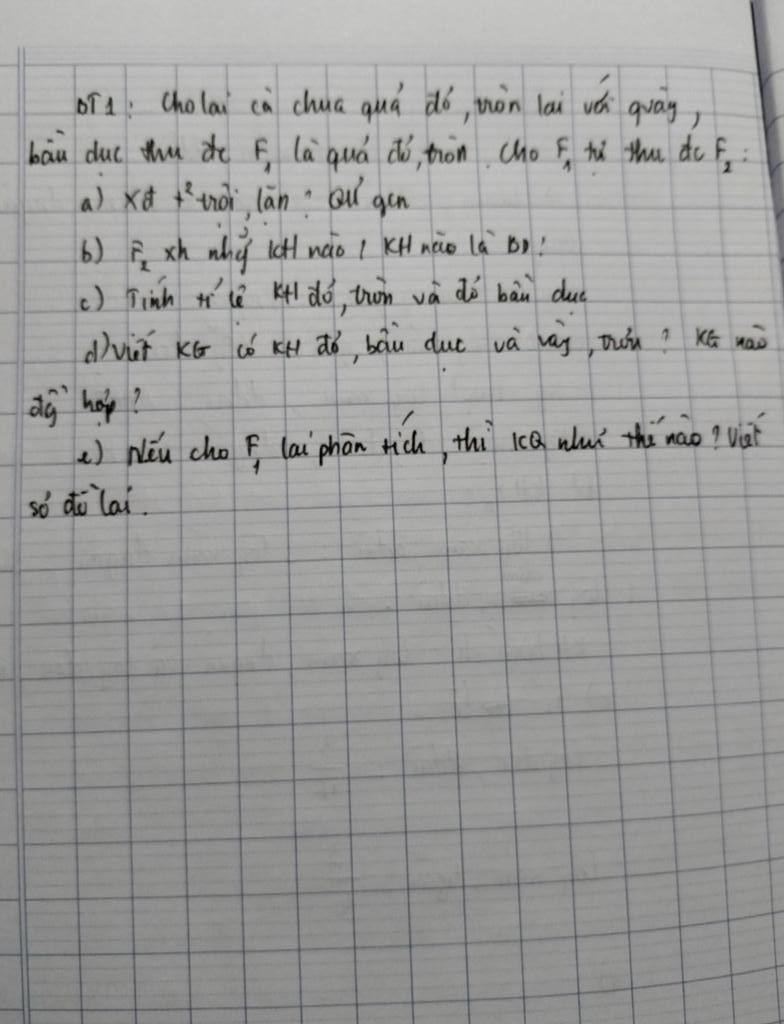 BT1: Cho lai cà chua quả đỏ, tròn lai với quả vàng,
bầu dục thu đc F1 là quả đỏ, tròn. Cho F1 tự thu đc F2:
a) XĐ t² trội, lặn? QƯ gen
b) F2 xh nhg~ KH nào! KH nào là BD!
c) Tính tỉ lệ KH đỏ, tròn và đỏ bầu dục
d) Viết KG có KH đỏ, bầu dục và vàg, tròn? KG nào
đồg hợp?
e) Nếu cho F1 lai phân tích, thì KQ như thế nào? Viết
sơ đồ lai.